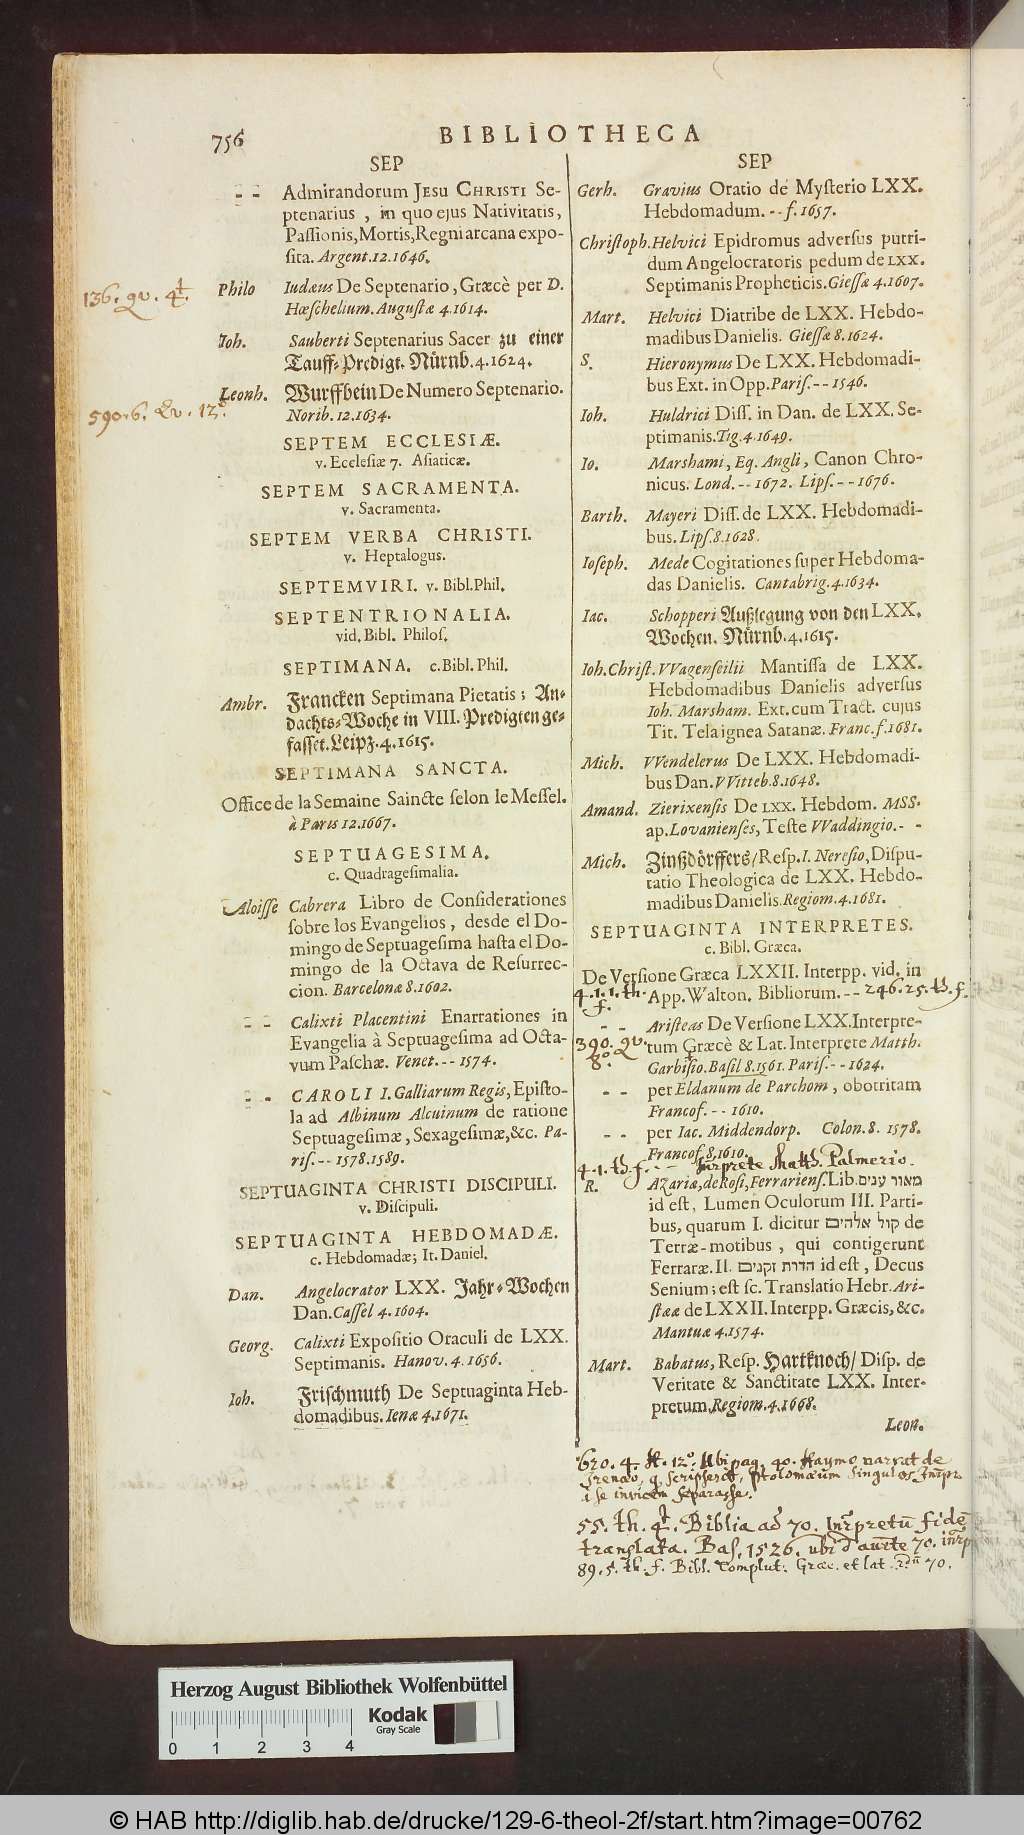 756
BIBLIOTHECA
SEP
- - Admirandorum JESU CHRISTI Se-
ptenarius, in quo ejus Nativitatis,
Passionis, Mortis, Regni arcana expo-
sita. Argent. 12. 1646.
136. qv. 4t.
Philo Iudæus De Septenario, Græcè per D.
Hœschelium. Augustæ 4. 1614.
Joh. Sauberti Septenarius Sacer zu einer
Tauff-Predigt. Nürnb. 4. 1624.
Leonh. Wurffbein De Numero Septenario.
590. 6. Qv. 12°.
Norib. 12. 1634.
SEPTEM ECCLESIÆ.
v. Ecclesiæ 7. Asiaticæ.
SEPTEM SACRAMENTA.
v. Sacramenta.
SEPTEM VERBA CHRISTI.
v. Heptalogus.
SEPTEMVIRI. v. Bibl. Phil.
SEPTENTRIONALIA.
vid. Bibl. Philos.
SEPTIMANA. c. Bibl. Phil.
Ambr. Francken Septimana Pietatis; An-
dachts-Woche in VIII. Predigten ge-
fasset. Leipz. 4. 1615.
SEPTIMANA SANCTA.
Office de la Semaine Saincte selon le Messel.
à Paris 12. 1667.
SEPTUAGESIMA.
c. Quadragesimalia.
Aloisse Cabrera Libro de Considerationes
sobre los Evangelios, desde el Do-
mingo de Septuagesima hasta el Do-
mingo de la Octava de Resurrec-
cion. Barcelonæ 8. 1602.
- - Calixti Placentini Enarrationes in
Evangelia à Septuagesima ad Octa-
vum Paschæ. Venet. - - 1574.
- - CAROLI I. Galliarum Regis, Episto-
la ad Albinum Alcuinum de ratione
Septuagesimæ, Sexagesimæ, &c. Pa-
ris. - - 1578. 1589.
SEPTUAGINTA CHRISTI DISCIPULI.
v. Discipuli.
SEPTUAGINTA HEBDOMADÆ.
c. Hebdomadæ; It. Daniel.
Dan. Angelocrator LXX. Jahr-Wochen
Dan. Cassel 4. 1604.
Georg. Calixti Expositio Oraculi de LXX.
Septimanis. Hanov. 4. 1656.
Ioh. Frischmuth De Septuaginta Heb-
domadibus. Ienæ 4. 1671.
SEP
Gerh. Gravius Oratio de Mysterio LXX.
Hebdomadum. - - f. 1657.
Christoph. Helvici Epidromus adversus putri-
dum Angelocratoris pedum de LXX.
Septimanis Propheticis. Giessæ 4. 1607.
Mart. Helvici Diatribe de LXX. Hebdo-
madibus Danielis. Giessæ 8. 1624.
S. Hieronymus De LXX. Hebdomadi-
bus Ext. in Opp. Paris. - - 1546.
Ioh. Huldrici Diss. in Dan. de LXX. Se-
ptimanis. Tig. 4. 1649.
Io. Marshami, Eq. Angli, Canon Chro-
nicus. Lond. - - 1672. Lips. - - 1676.
Barth. Mayeri Diss. de LXX. Hebdomadi-
bus. Lips. 8. 1628.
Ioseph. Mede Cogitationes super Hebdoma-
das Danielis. Cantabrig. 4. 1634.
Iac. Schopperi Außlegung von den LXX.
Wochen. Nürnb. 4. 1615.
Ioh. Christ. VVagenseilii Mantissa de LXX.
Hebdomadibus Danielis adversus
Ioh. Marsham. Ext. cum Tract. cujus
Tit. Tela ignea Satanæ. Franc. f. 1681.
Mich. VVendelerus De LXX. Hebdomadi-
bus Dan. VVitteb. 8. 1648.
Amand. Zierixensis De LXX. Hebdom. MSS.
ap. Lovanienses, Teste VVaddingio. - -
Mich. Zinßdörffers/ Resp. I. Neresio, Dispu-
tatio Theologica de LXX. Hebdo-
madibus Danielis. Regiom. 4. 1681.
SEPTUAGINTA INTERPRETES.
c. Bibl. Græca.
De Versione Græca LXXII. Interpp. vid. in
4. 1. 1. th. f. App. Walton. Bibliorum. - - 246. 25. th. f.
- - Aristeas De Versione LXX. Interpre-
390. Qv. 8°. tum Græcè & Lat. Interprete Matth.
Garbisio. Basil 8. 1561. Paris. - - 1624.
- - per Eldanum de Parchom, obotritam
Francof. - - 1610.
- - per Iac. Middendorp. Colon. 8. 1578.
Francof. 8. 1610.
4. 1. th. f. - - Interprete Matth. Palmerio.
R. Azariæ, de Rosi, Ferrariens. Lib. מאור ענים
id est, Lumen Oculorum III. Parti-
bus, quarum I. dicitur קול אלהים de
Terræ-motibus, qui contigerunt
Ferraræ. II. הדרת זקנים id est, Decus
Senium; est sc. Translatio Hebr. Ari-
stææ de LXXII. Interpp. Græcis, &c.
Mantuæ 4. 1574.
Mart. Babatus, Resp. Hartknoch/ Disp. de
Veritate & Sanctitate LXX. Inter-
pretum. Regiom. 4. 1668.
Leon.
620. 4. H. 12°. Ubi pag. 40. Haymo narrat de
Irenæo, q. scripserit, Ptolomæum singulos Interpr.
a se invicem separasse.
55. th. 4t. Biblia ad 70. Interpretū fidē
translata. Bas. 1526.
89. 5. th. f. Bibl. Complut. Græc. et lat. 70.
Herzog August Bibliothek Wolfenbüttel
Kodak
Gray Scale
0 1 2 3 4
© HAB http://diglib.hab.de/drucke/129-6-theol-2f/start.htm?image=00762